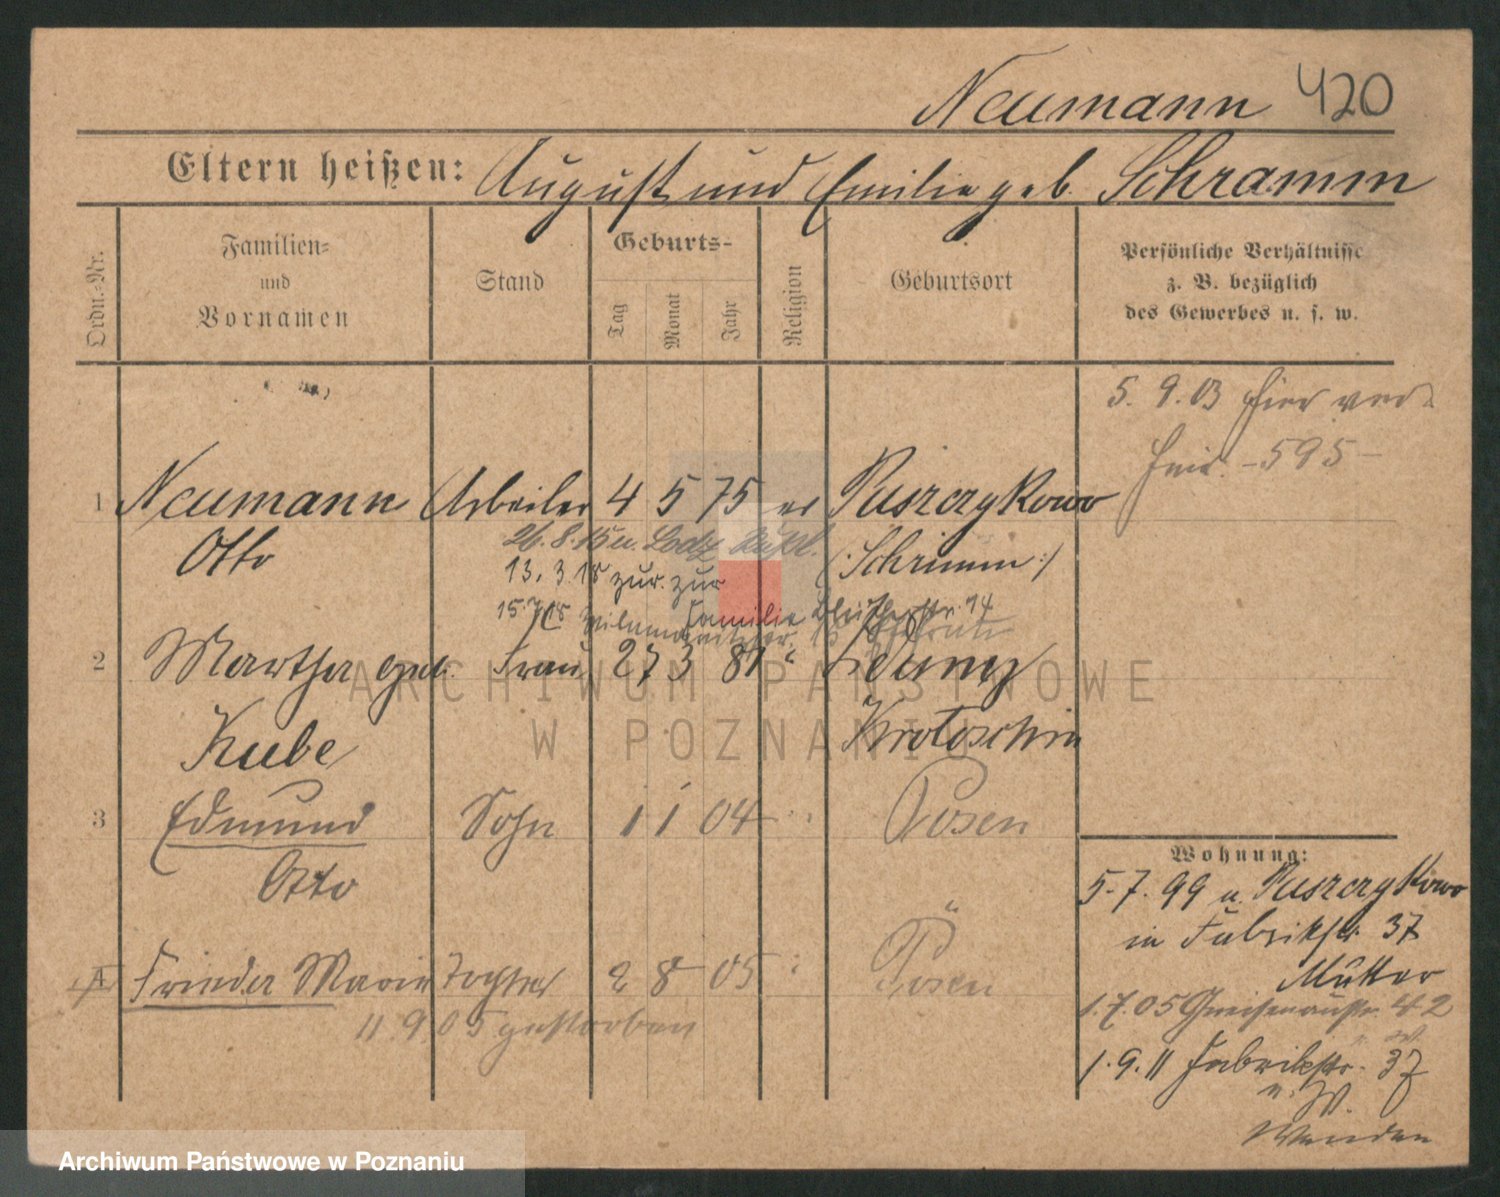 Neumann 420
Eltern heißen: August und Emilie geb. Schramm
Ordn.-Nr.
Familien-
und
Vornamen
Stand
Geburts-
Tag
Monat
Jahr
Religion
Geburtsort
Persönliche Verhältnisse
z. B. bezüglich
des Gewerbes u. s. w.
5. 9. 03 hier ver-
heir. - 595 -
1 Neumann Arbeiter 4 5 75 ev Puszczykowo
Otto (: Schrimm :)
26. 8. 15 u. Lodz Rußl.
13. 3. 18 zur. zur
15. 7. 18 Familie 14
2 Martha geb. Frau 27 3 81 "
Kube Krotoschin
3 Edmund Sohn 1 1 04 " Posen
Otto
4 Frieda Marie Tochter 2 8 05 " Posen
11. 9. 05 gestorben
Wohnung:
5. 7. 99 u. Puszczykowo
in Fabrikstr. 37
Mutter
1. 7. 05 Gneisenaustr. 42
1. 9. 11 Fabrikstr. 37
u. W.
Wenden
ARCHIWUM PAŃSTWOWE
W POZNANIU
Archiwum Państwowe w Poznaniu